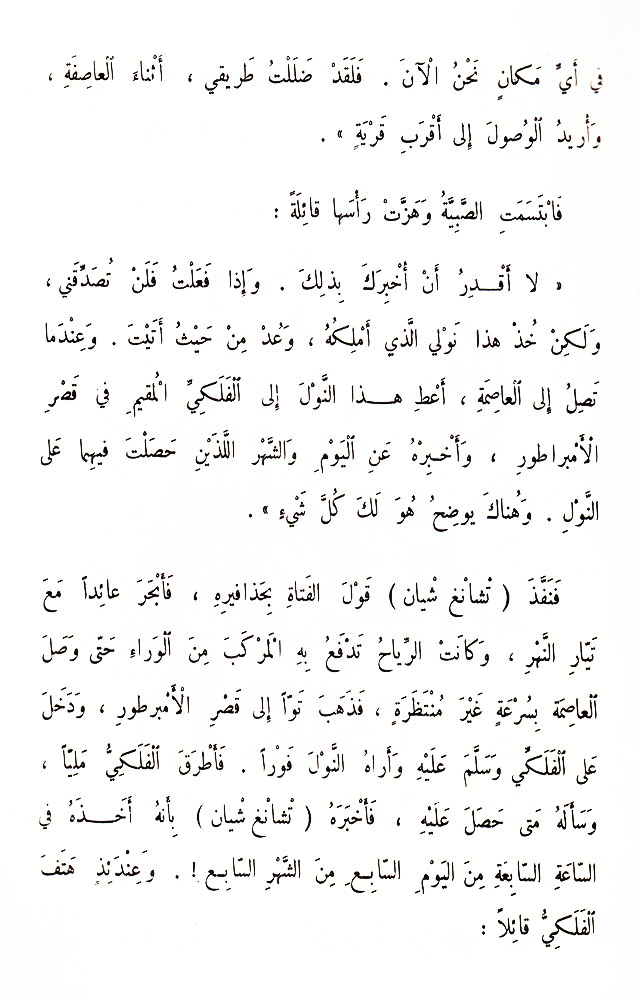 في أَيِّ مَكانٍ نَحْنُ الْآنَ . فَلَقَدْ ضَلَلْتُ طَريقي ، أَثْناءَ الْعاصِفَةِ ،
وَأُريدُ الْوُصولَ إِلى أَقْرَبِ قَرْيَةٍ » .
فَابْتَسَمَتِ الصَّبِيَّةُ وَهَزَّتْ رَأْسَها قائِلَةً :
« لا أَقْـدِرُ أَنْ أُخْبِرَكَ بِذلِكَ . وَإِذا فَعَلْتُ فَلَنْ تُصَدِّقَني ،
وَلَـكِنْ خُذْ هذا نَوْلي الَّذي أَمْلِكُهُ ، وَعُدْ مِنْ حَيْثُ أَتَيْتَ . وَعِنْدَما
تَصِلُ إِلى الْعاصِمَةِ ، أَعْطِ هـــذا النَّوْلَ إِلى الْفَلَكِيِّ الْمُقيمِ في قَصْرِ
الْأَمْبراطورِ ، وَأَخْـبِرْهُ عَنِ الْيَوْمِ وَالشَّهْرِ اللَّذَيْنِ حَصَلْتَ فيهِما عَلى
النَّوْلِ . وَهُناكَ يوضِحُ هُوَ لَكَ كُلَّ شَيْءٍ » .
فَنَفَّذَ ( تْشانْغ شْيان ) قَوْلَ الفَتاةِ بِحَذافيرِهِ ، فَأَبْحَرَ عائِداً مَعَ
تَيّارِ النَّهْرِ ، وَكانَتْ الرِّياحُ تَدْفَعُ بِهِ الْمَرْكَبَ مِنَ الْوَراءِ حَتّى وَصَلَ
الْعاصِمَة بِسُرْعَةٍ غَيْرَ مُنْتَظَرَةٍ ، فَذَهَبَ تَوّاً إِلى قَصْرِ الْأَمْبرطورِ ، وَدَخَلَ
عَلى الْفَلَكِّي وَسَلَّمَ عَلَيْهِ وَأَراهُ النَّوْلَ فَوْراً . فَأَطْرَقَ الْفَلَكِيُّ مَلِيّاً ،
وَسَأَلَهُ مَتى حَصَلَ عَلَيْهِ ، فَأَخْبَرَهُ ( تْشانْغ شْيان ) بِأَنهُ أَخَـــذَهُ في
السّاعَةِ السّابِعَةِ مِنَ الْيَوْمِ السّابِـعِ مِنَ الشَّهْرِ السّابِـع ! . وَعِنْدَئِذٍ هَتَفَ
الْفَلَكِيُّ قائِلاً :